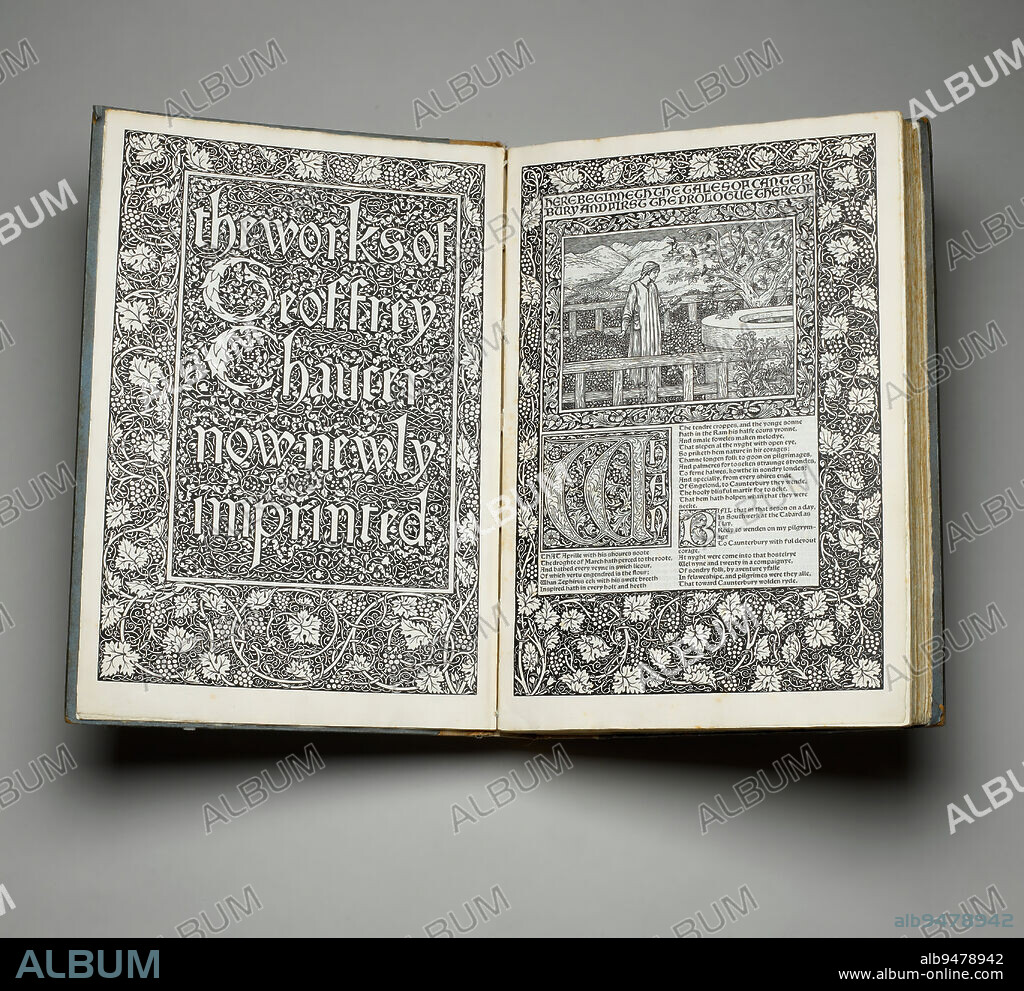 the works of
Geoffrey
Chaucer
now newly
imprinted
HERE BEGINNETH THE TALES OF CANTER
BURY AND FIRST THE PROLOGUE THEREOF
WHAN
THAT Aprille with his shoures soote
The droghte of March hath perced to the roote,
And bathed every veyne in swich licour,
Of which vertu engendred is the flour;
Whan Zephirus eek with his swete breeth
Inspired hath in every holt and heeth
The tendre croppes, and the yonge sonne
Hath in the Ram his halfe cours yronne,
And smale foweles maken melodye,
That slepen al the nyght with open eye,
So priketh hem nature in hir corages;
Thanne longen folk to goon on pilgrimages,
And palmeres for to seken straunge strondes,
To ferne halwes, kowthe in sondry londes;
And specially, from every shires ende
Of Engelond, to Caunterbury they wende,
The hooly blisful martir for to seke,
That hem hath holpen whan that they were
seeke.
BIFIL that in that seson on a day,
In Southwerk at the Tabard as
I lay,
Redy to wenden on my pilgrym-
age
To Caunterbury with ful devout
corage,
At nyght were come into that hostelrye
Wel nyne and twenty in a compaignye,
Of sondry folk, by aventure yfalle
In felaweshipe, and pilgrimes were they alle,
That toward Caunterbury wolden ryde.
alb9478942
ALBUM
alb9478942
www.album-online.com